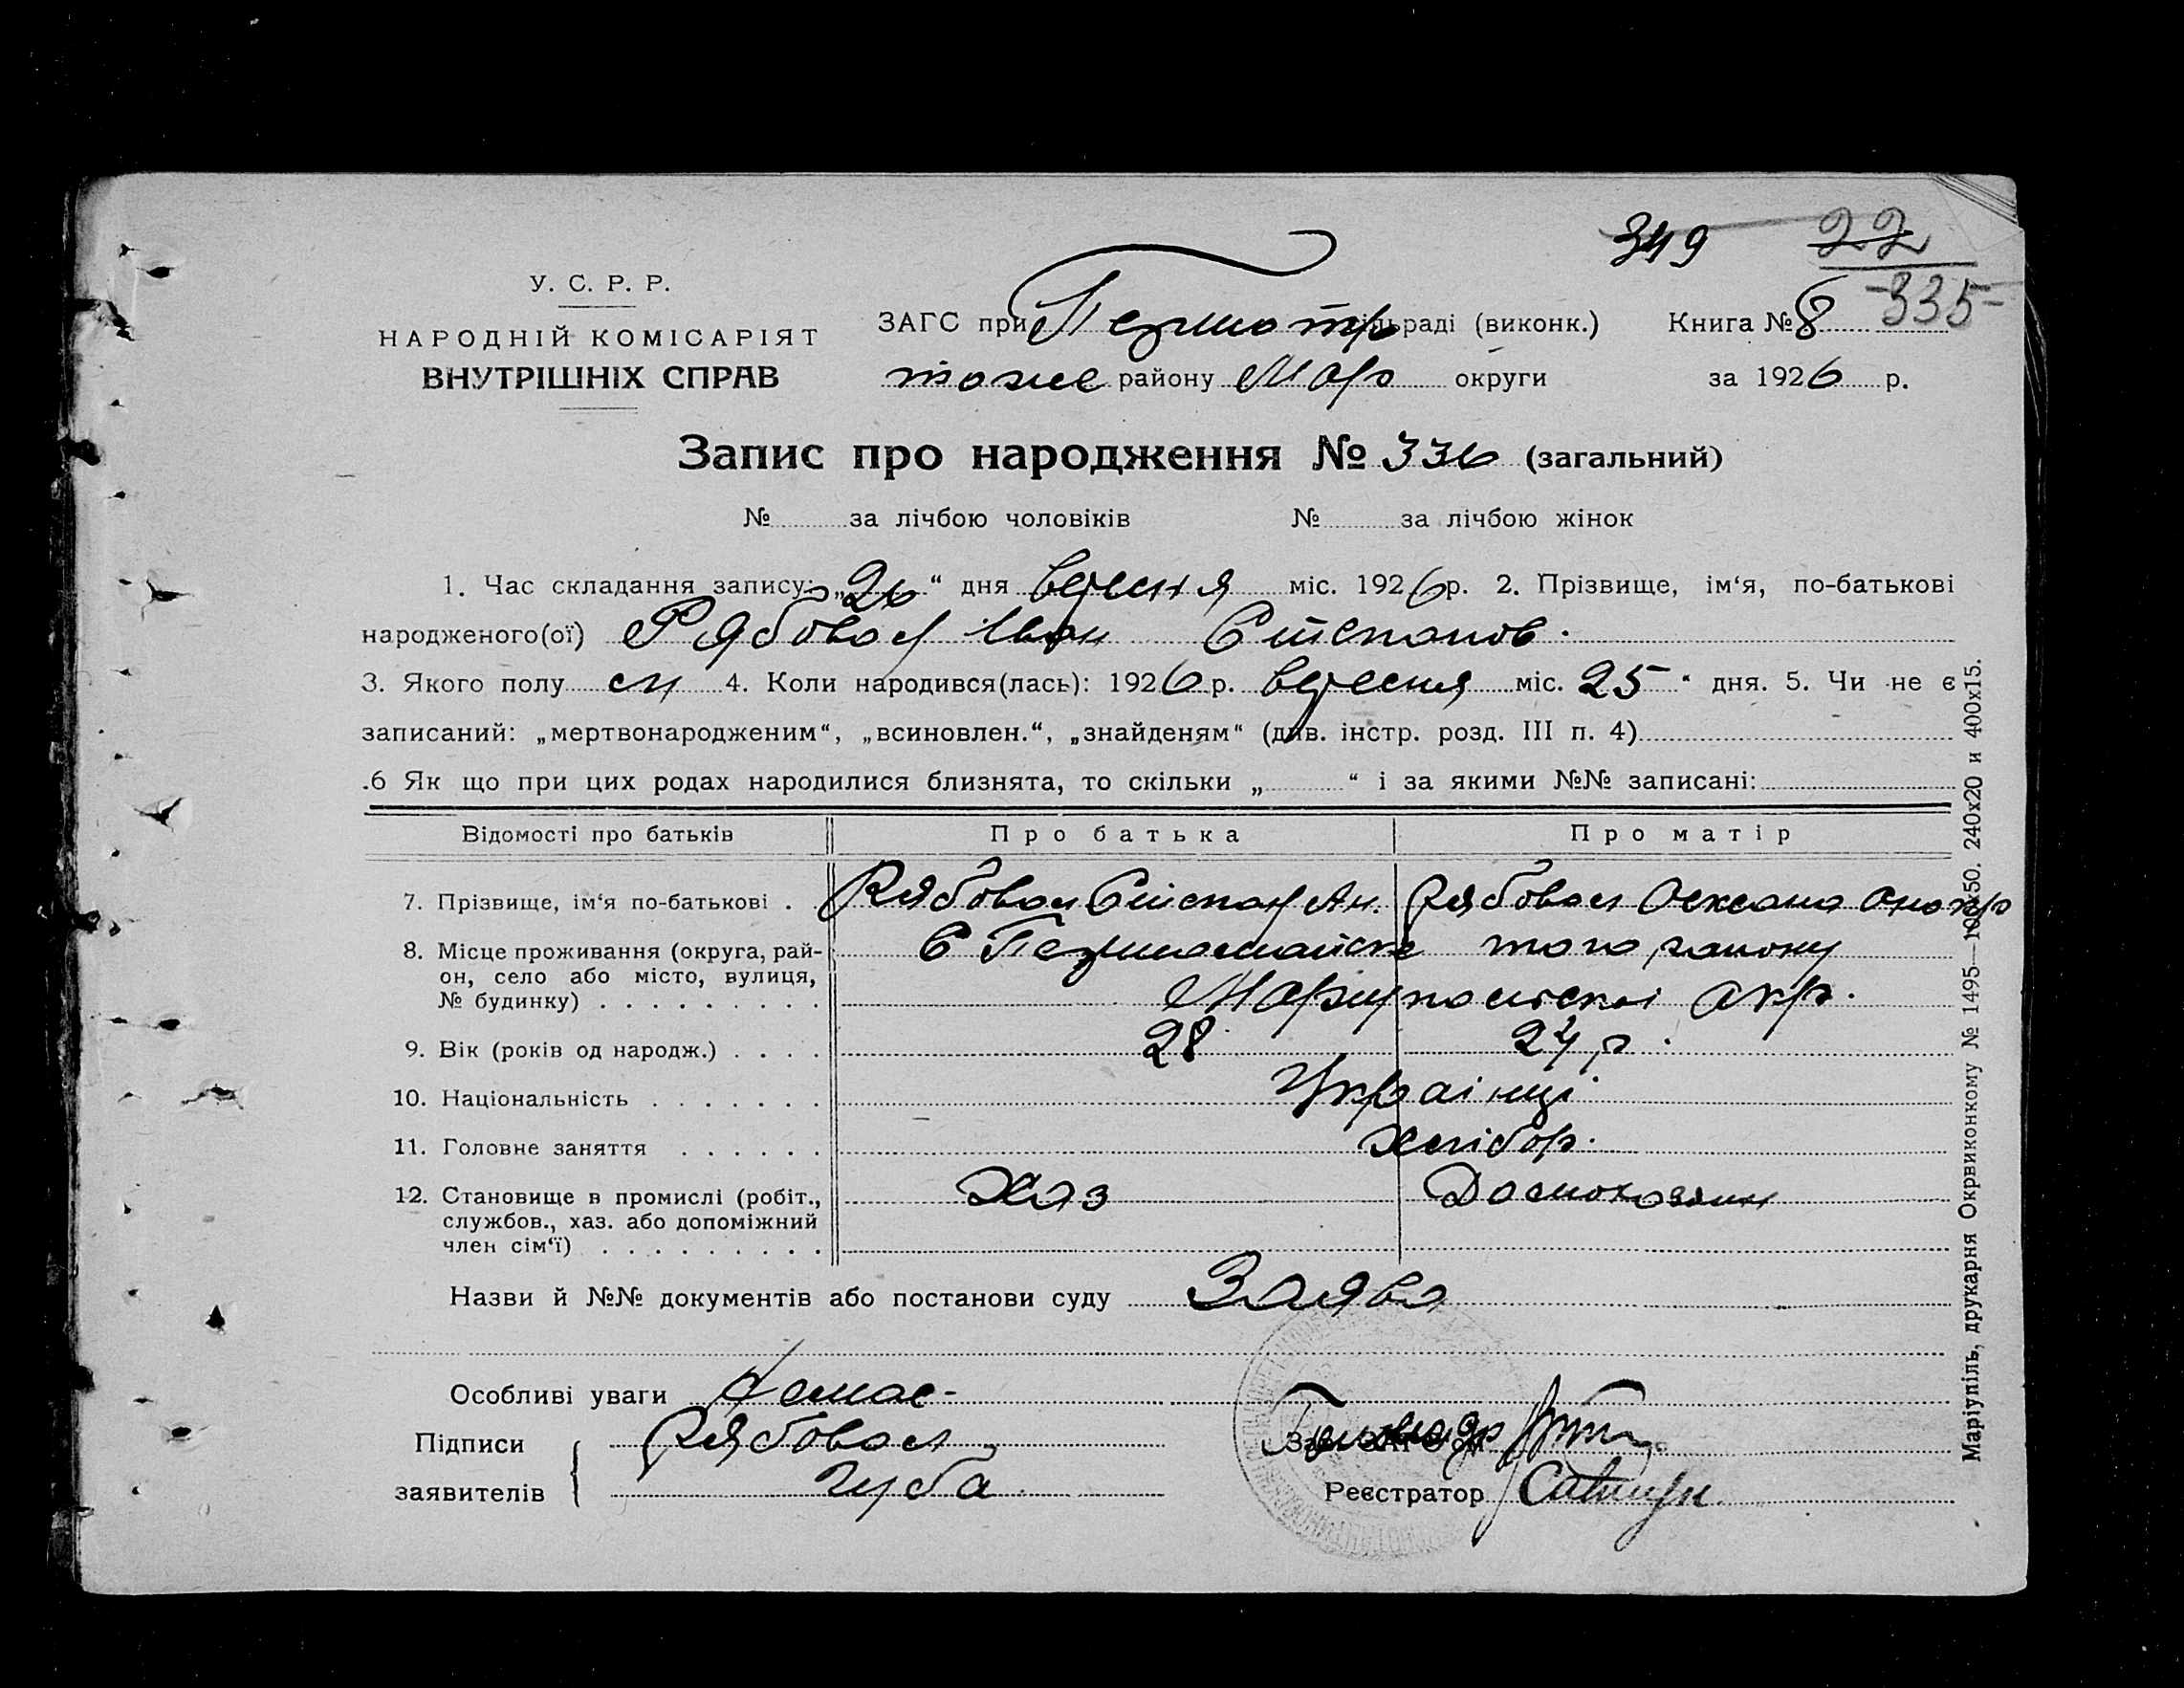 349 22
335
У. С. Р. Р.
НАРОДНІЙ КОМІСАРІЯТ
ВНУТРІШНІХ СПРАВ
ЗАГС при сільраді (виконк.) Книга № 8
тоже району Мар округи за 1926 р.
Запис про народження № 336 (загальний)
№ за лічбою чоловіків № за лічбою жінок
1. Час складання запису: „26“ дня вересня міс. 1926 р. 2. Прізвище, ім‘я, по-батькові
народженого(ої) Рябовол Іван Степанов.
3. Якого полу 4. Коли народився(лась): 1926 р. вересня міс. 25“ дня. 5. Чи не є
записаний: „мертвонародженим“, „всиновлен.“, „знайденям“ (див. інстр. розд. III п. 4)
.6 Як що при цих родах народилися близнята, то скільки „ “ і за якими №№ записані:
Відомості про батьків Про батька Про матір
7. Прізвище, ім‘я по-батькові . Рябовол Степан Ан. Рябовол Оксана
8. Місце проживання (округа, рай-
он, село або місто, вулиця,
№ будинку) . . . . . . . . .
С того району
Маріупольскоі окр.
9. Вік (років од народж.) . . . . 28 24 р.
10. Національність . . . . . . . Українці
11. Головне заняття . . . . . . хлібор.
12. Становище в промислі (робіт.,
службов., хаз. або допоміжний
член сім‘ї) . . . . . . . . .
Хаз
Назви й №№ документів або постанови суду Заява
Особливі уваги немає
Підписи Рябовол
заявителів Губа
Реєстратор
Маріупіль, друкарня Окрвиконкому № 1495—100х50. 240х20 и 400х15.